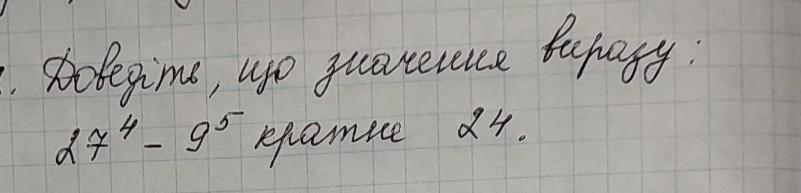 . Доведіть, що значення виразу:
27⁴ - 9⁵ кратне 24.